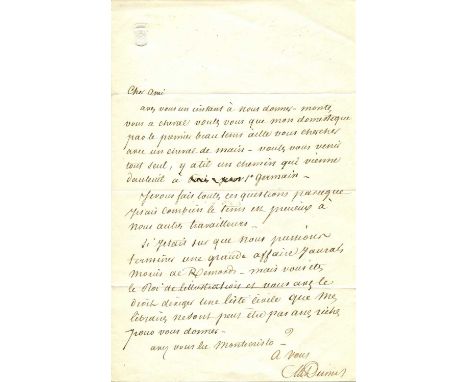 Cher Ami
avez vous un instant à nous donner – montez
vous a cheval voulez vous que mon domestique
par le premier beau tems aille vous chercher
avec un cheval de main – voulez vous venir
tout seul, y a til un chemin qui vienne
dauteuil à St Germain –
Je vous fais toutes ces questions parceque
Je sais combien le tems est precieux à
nous autres travailleurs –
Si J'etais sur que nous puissions
terminer une grande affaire J'aurais
moins de Remords – mais vous etes
le Roi de lillustration et vous avez le
droit dexiger une liste civile que mes
libraires ne sont peut etre pas assez riches
pour vous donner –
avez vous lu Montecristo – ?
A vous
Al Dumas